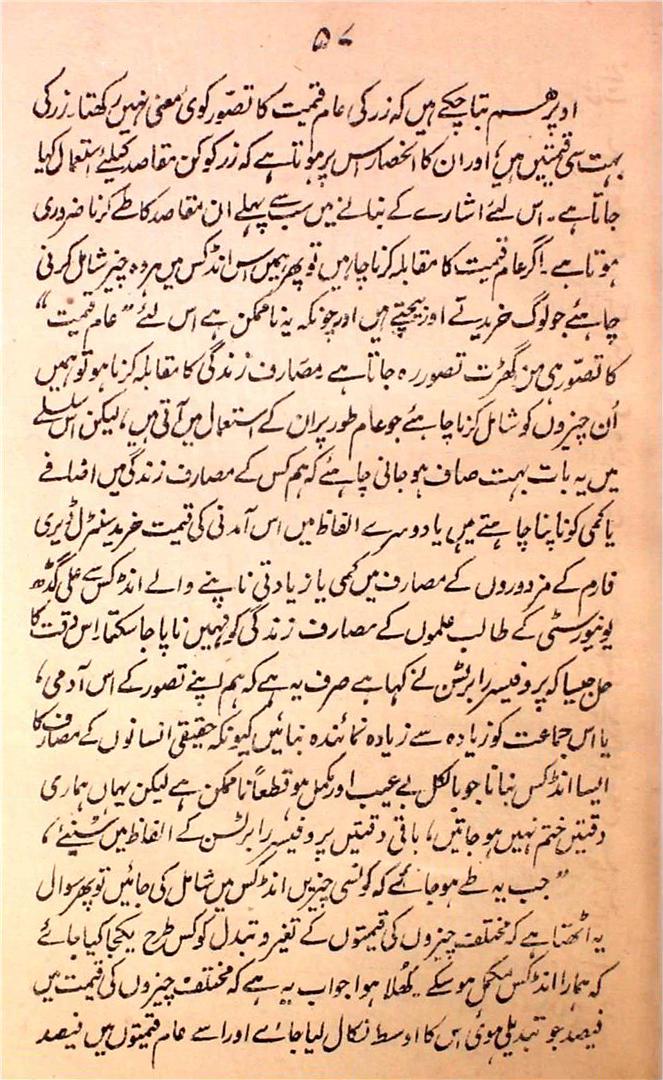 ۵۷
اوپر ہم بتا چکے ہیں کہ زر کی عام قیمت کا تصوّر کوئی معنی نہیں رکھتا۔ زر کی
بہت سی قیمتیں ہیں، اور ان کا انحصار اس پر ہوتا ہے کہ زر کو کن مقاصد کیلئے استعمال کیا
جاتا ہے۔ اس لئے اشارے کے بنانے میں سب سے پہلے ان مقاصد کا طے کرنا ضروری
ہوتا ہے۔ اگر عام قیمت کا مقابلہ کرنا چاہیں تو پھر ہمیں اس انڈکس میں ہر وہ چیز شامل کرنی
چاہئے جو لوگ خریدتے اور بیچتے ہیں اور چونکہ یہ ناممکن ہے اس لئے "عام قیمت"
کا تصوّر ہی من گھڑت تصور رہ جاتا ہے۔ مصارف زندگی کا مقابلہ کرنا ہو تو ہمیں
اُن چیزوں کو شامل کرنا چاہئے جو عام طور پر ان کے استعمال میں آتی ہیں، لیکن اس سلسلے
میں یہ بات بہت صاف ہو جانی چاہئے کہ ہم کس کے مصارف زندگی میں اضافے
یا کمی کو ناپنا چاہتے ہیں یا دوسرے الفاظ میں اس آمدنی کی قیمت خرید سنٹرل ڈیری
فارم کے مزدوروں کے مصارف میں کمی یا زیادتی ناپنے والے انڈکس سے علی گڈھ
یونیورسٹی کے طالب علموں کے مصارف زندگی کو نہیں ناپا جا سکتا، اس دقت کا
حل جیسا کہ پروفیسر رابرٹسن نے کہا ہے صرف یہ ہے کہ ہم اپنے تصور کے اس آدمی،
یا اس جماعت کو زیادہ سے زیادہ نمائندہ بنائیں کیونکہ حقیقی انسانوں کے مصارف کا
ایسا انڈکس بنانا جو بالکل بے عیب اور مکمل ہو قطعاً ناممکن ہے لیکن یہاں ہماری
دقتیں ختم نہیں ہو جاتیں، باقی دقتیں پروفیسر رابرٹسن کے الفاظ میں سنیئے،
"جب یہ طے ہو جائے کہ کونسی چیزیں انڈکس میں شامل کی جائیں تو پھر سوال
یہ اٹھتا ہے کہ مختلف چیزوں کی قیمتوں کے تغیر و تبدل کو کس طرح یکجا کیا جائے
کہ ہمارا انڈکس مکمل ہو سکے۔ کھلا ہوا جواب یہ ہے کہ مختلف چیزوں کی قیمت میں
فیصد جو تبدیلی ہوئی اس کا اوسط نکال لیا جائے اور اسے عام قیمتوں میں فیصد